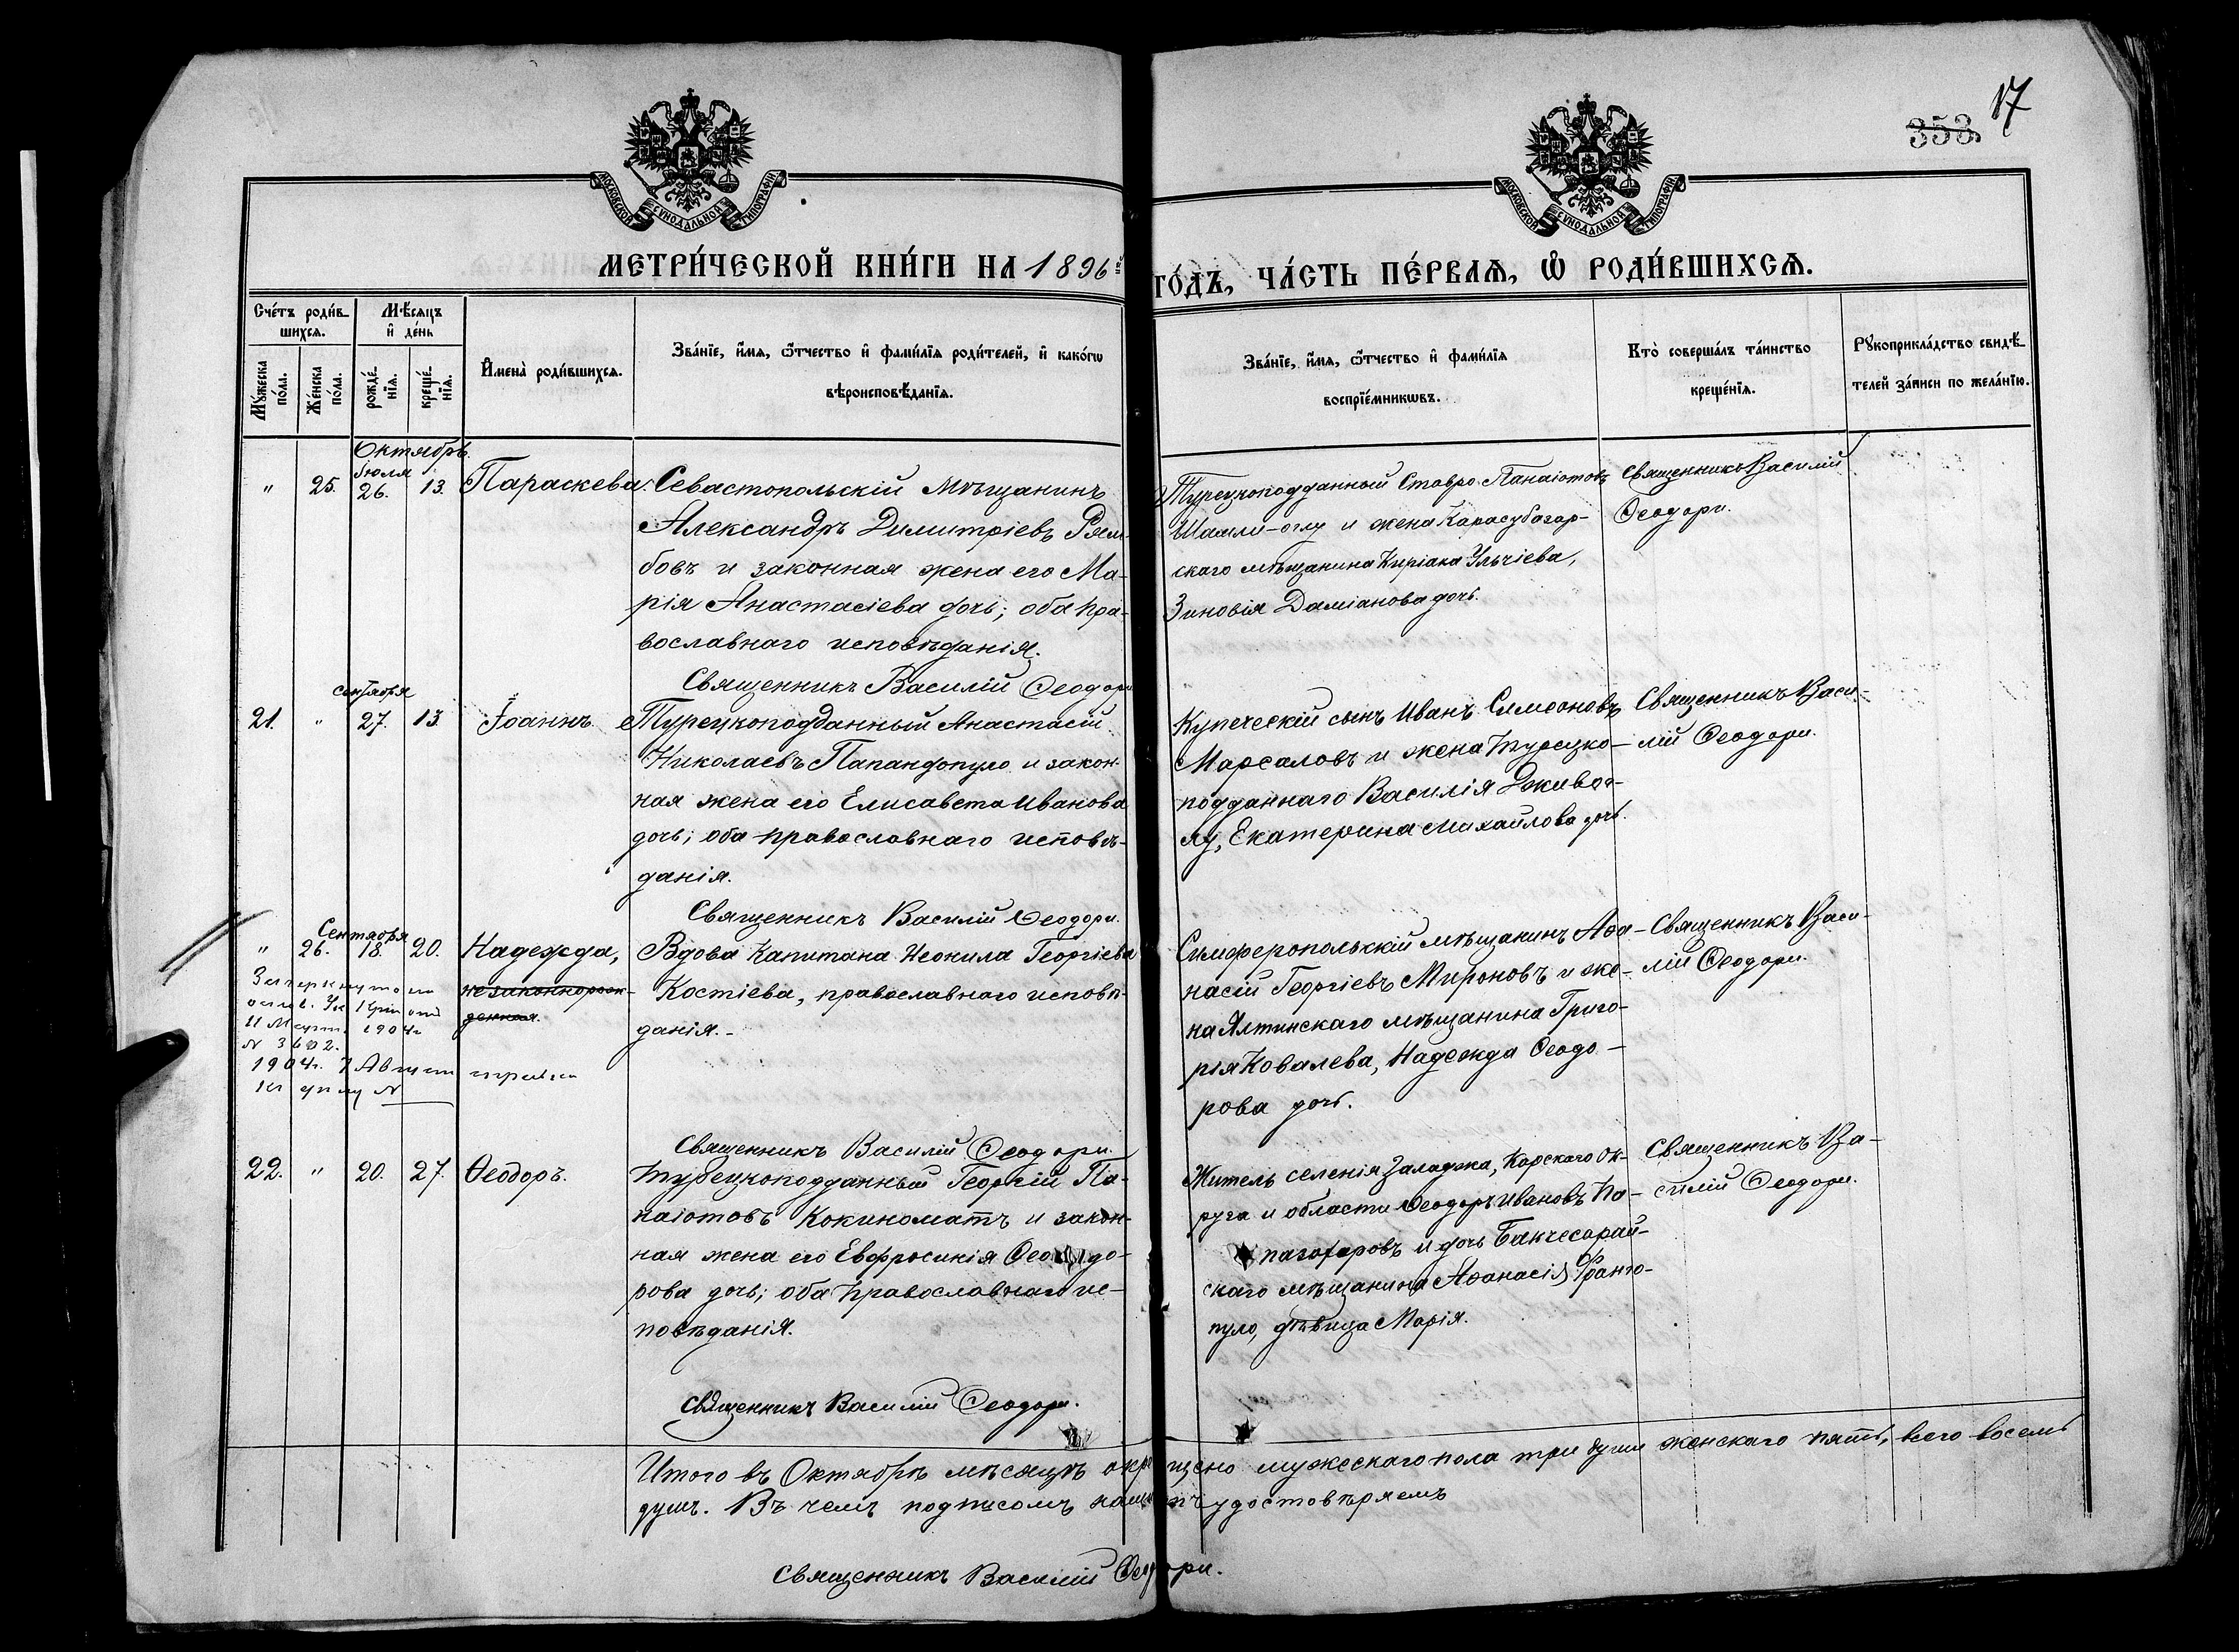 17
353.
МОСКОВСКОЙ СУНОДАЛЬНОЙ ТИПОГРАФІИ
МОСКОВСКОЙ СУНОДАЛЬНОЙ ТИПОГРАФІИ
МЕТРИ́ЧЕСКОЙ КНИ́ГИ НА 1896
ГО́ДЪ, ЧА́СТЬ ПЕ́РВАѦ, Ѿ РОДИ́ВШИХСѦ.
Сче́тъ роди́в-
шихсѧ.
Мѣ́сяцъ
и҆ де́нь
Мꙋ́жеска
по́ла.
Же́нска
по́ла.
рожде́-
нїѧ.
креще́-
нїѧ.
И҆мена̀ роди́вшихсѧ.
Зва́нїе, и҆́мѧ, ѻ҆́тчество и҆ фами́лїѧ роди́телей, и҆ како́гѡ
вѣроисповѣ́данїѧ.
Зва́нїе, и҆́мѧ, ѻ҆́тчество и҆ фами́лїѧ
воспрїе́мникѡвъ.
Кто̀ соверша́лъ та́инство
креще́нїѧ.
Рꙋкоприкла́дство свидѣ́-
телей за́писи по жела́нїю.
Октябрь
Іюля
" 25. 26. 13. Параскева.
Севастопольскій мѣщанинъ
Александръ Димитріевъ Рям-
бовъ и законная жена его Ма-
рія Анастасіева дочь; оба пра-
вославнаго исповѣданія.
Священникъ Василій Ѳеодори
Турецкоподданный Ставро Панаіотовъ
Шамли-оглу и жена Карасубазар-
скаго мѣщанина Киріака Ульчіева,
Зиновія Даміанова дочь.
Священникъ Василій
Ѳеодори.
сентября
21. " 27. 13. Іоаннъ.
Турецкоподданный Анастасій
Николаевъ Папандопуло и закон-
ная жена его Елисавета Иванова
дочь; оба православнаго исповѣ-
данія.
Священникъ Василій Ѳеодори.
Купеческій сынъ Иванъ Симеоновъ
Марсаловъ и жена турецко-
подданнаго Василія
Екатерина Михайлова дочь.
Священникъ Васи-
лій Ѳеодори.
Сентября
" 26. 18. 20. Надежда,
незаконнорож-
денная.
Зачеркнуто
1904 г
N 3602.
1904 г. 7 Август
N
Вдова Капитана Неонила Георгіева
Костіева, православнаго исповѣ-
данія.
Священникъ Василій Ѳеодори.
Симферопольскій мѣщанинъ Аѳа-
насій Георгіевъ Мироновъ и же-
на Ялтинскаго мѣщанина Григо-
рія Ковалева, Надежда Ѳеодо-
рова дочь.
Священникъ Васи-
лій Ѳеодори.
22. " 20. 27. Ѳеодоръ.
Турецкоподданный Георгій Па-
наіотовъ Кокиноматъ и закон-
ная жена его Евфросинія Ѳеодо-
рова дочь; оба православнаго ис-
повѣданія.
Священникъ Василій Ѳеодори.
Житель селенія Заладжа, Карскаго ок-
руга и области Ѳеодоръ Ивановъ Па-
и дочь Бакчесарай-
скаго мѣщанина Аѳанасія Франго-
пуло, дѣвица Марія.
Священникъ Ва-
силій Ѳеодори.
Итого въ Октябрѣ мѣсяцѣ окрещено мужескаго пола три души женскаго пять, всего восемь
душъ. Въ чемъ подписомъ нашимъ удостовѣряемъ
Священникъ Василій Ѳеодори.